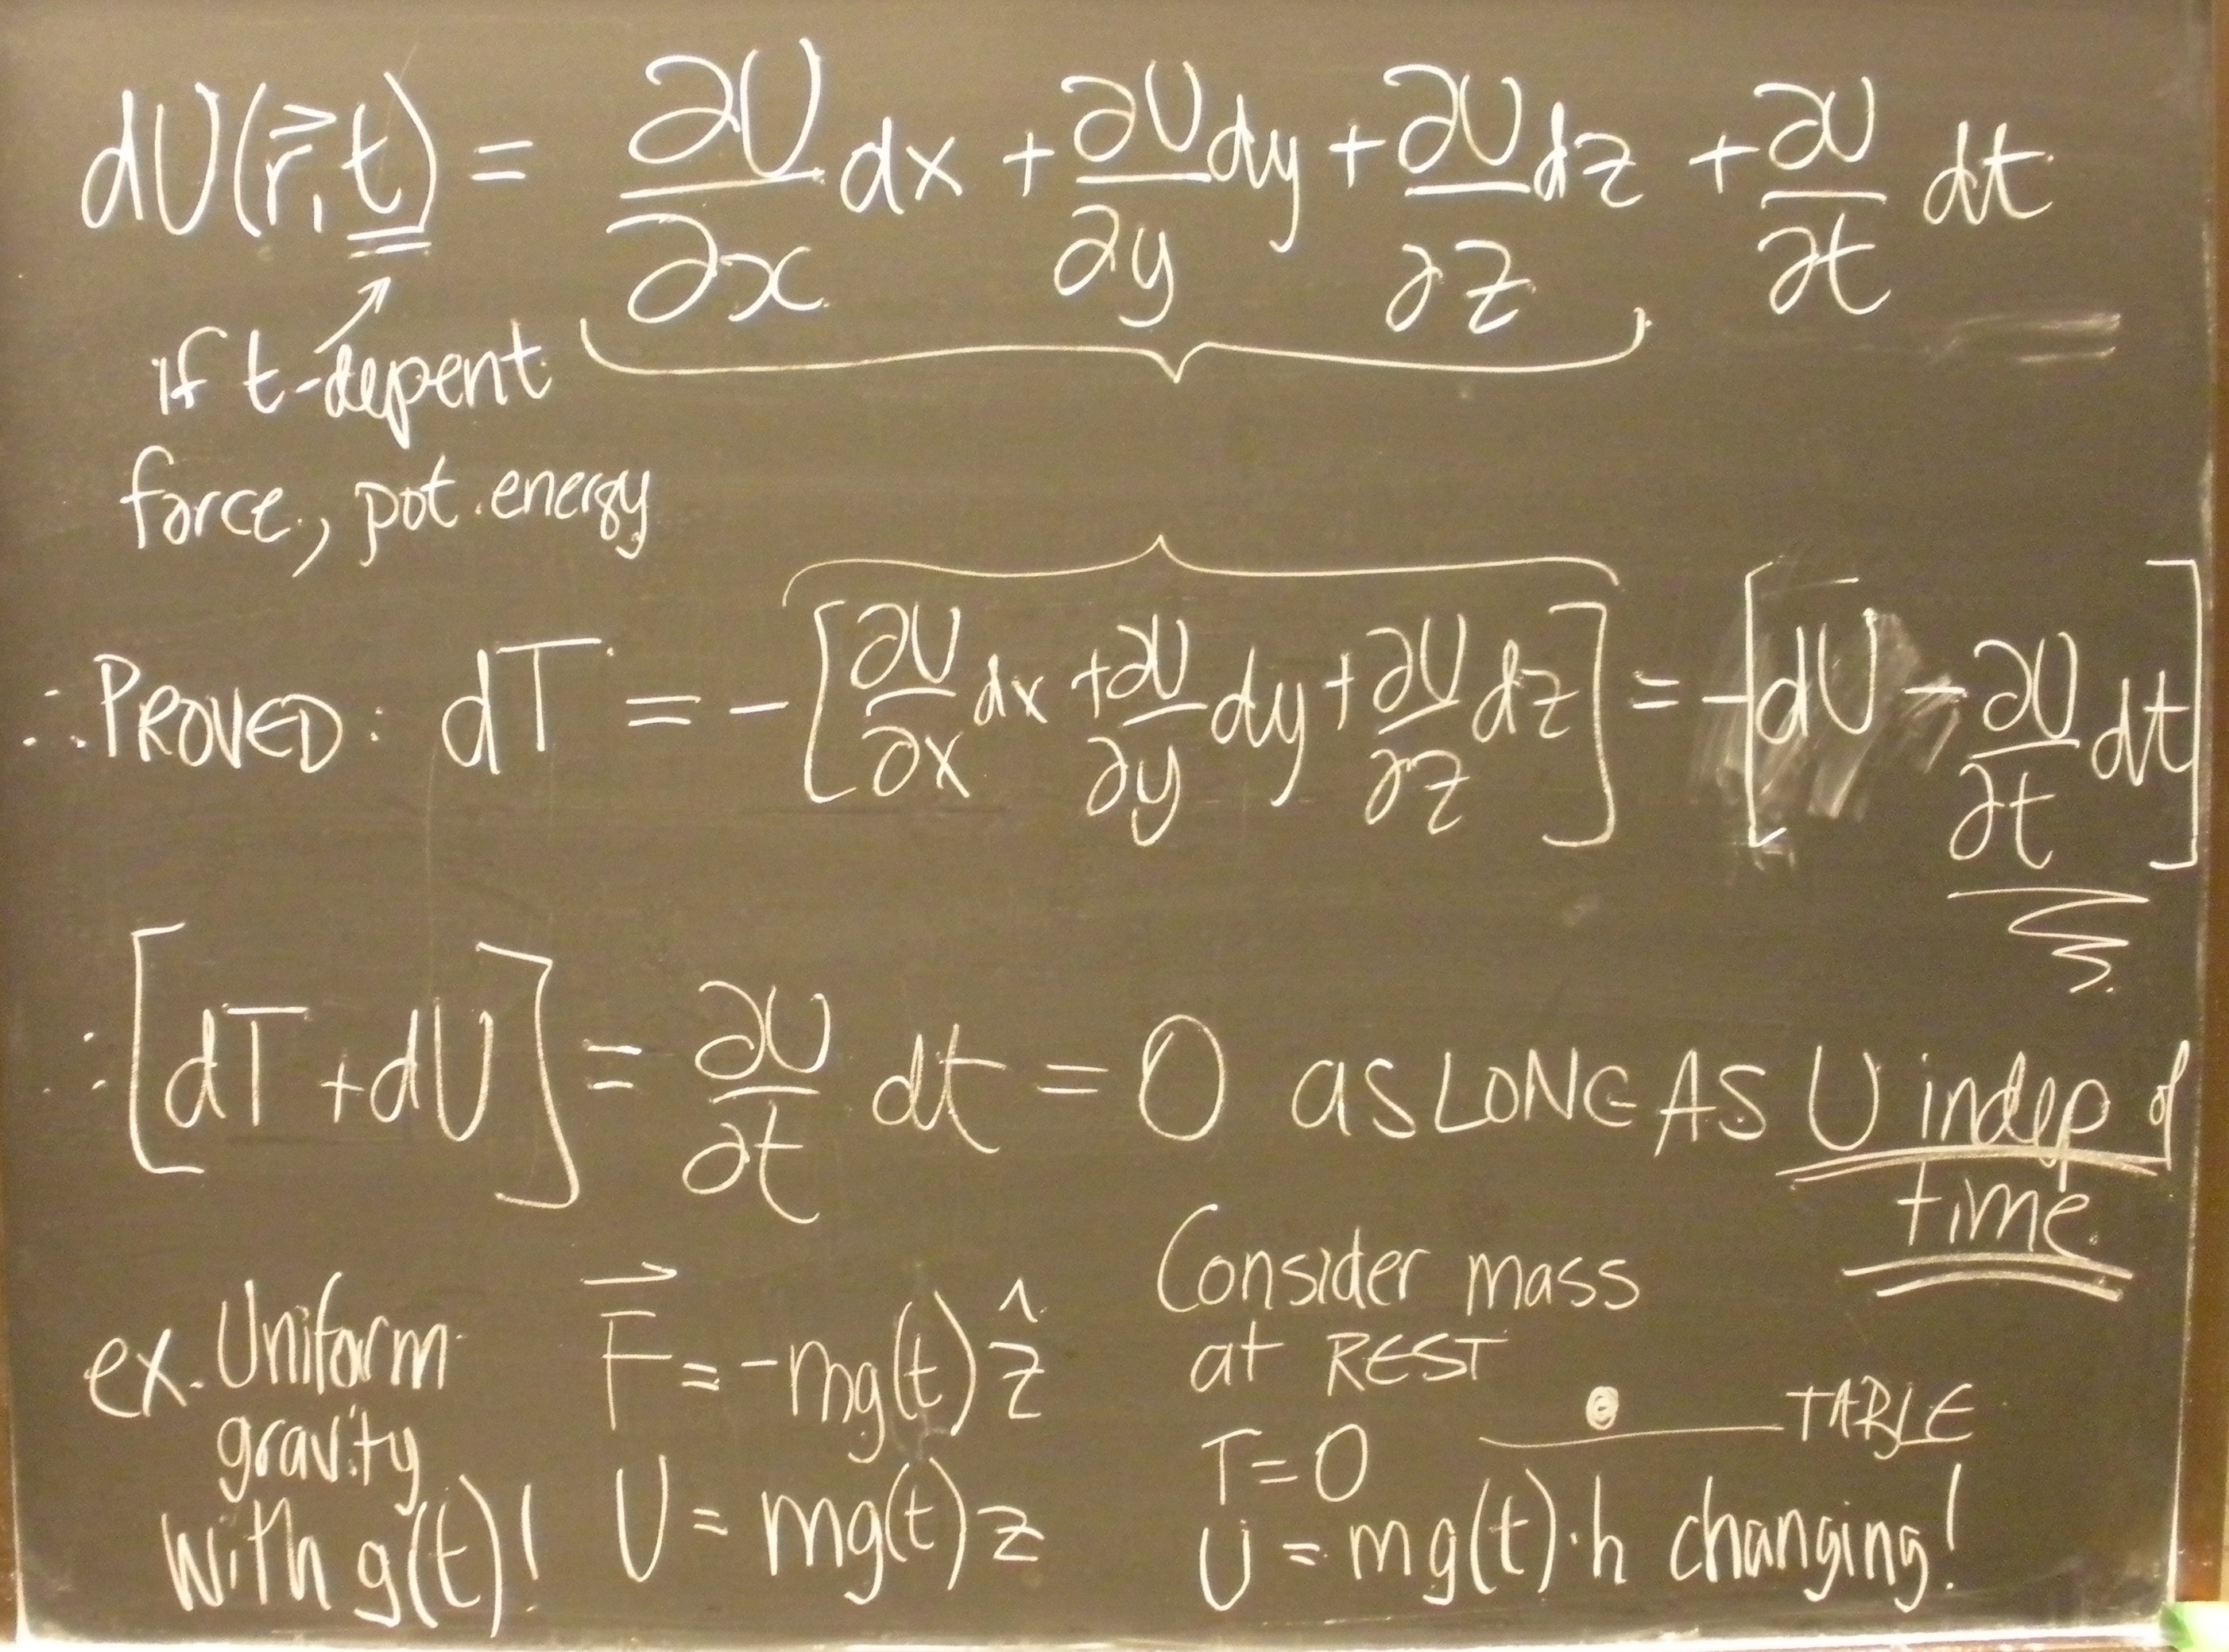 dU(r⃗, t) = ∂U/∂x dx + ∂U/∂y dy + ∂U/∂z dz + ∂U/∂t dt
if t-depent
force, pot. energy
∴ PROVED: dT = -[∂U/∂x dx + ∂U/∂y dy + ∂U/∂z dz] = -[dU - ∂U/∂t dt]
∴ [dT + dU] = ∂U/∂t dt = 0 as LONG AS U indep of
time
ex. Uniform
gravity
with g(t)!
F⃗ = -mg(t) ẑ
U = mg(t) z
Consider mass
at REST
TABLE
T = 0
U = mg(t)·h changing!